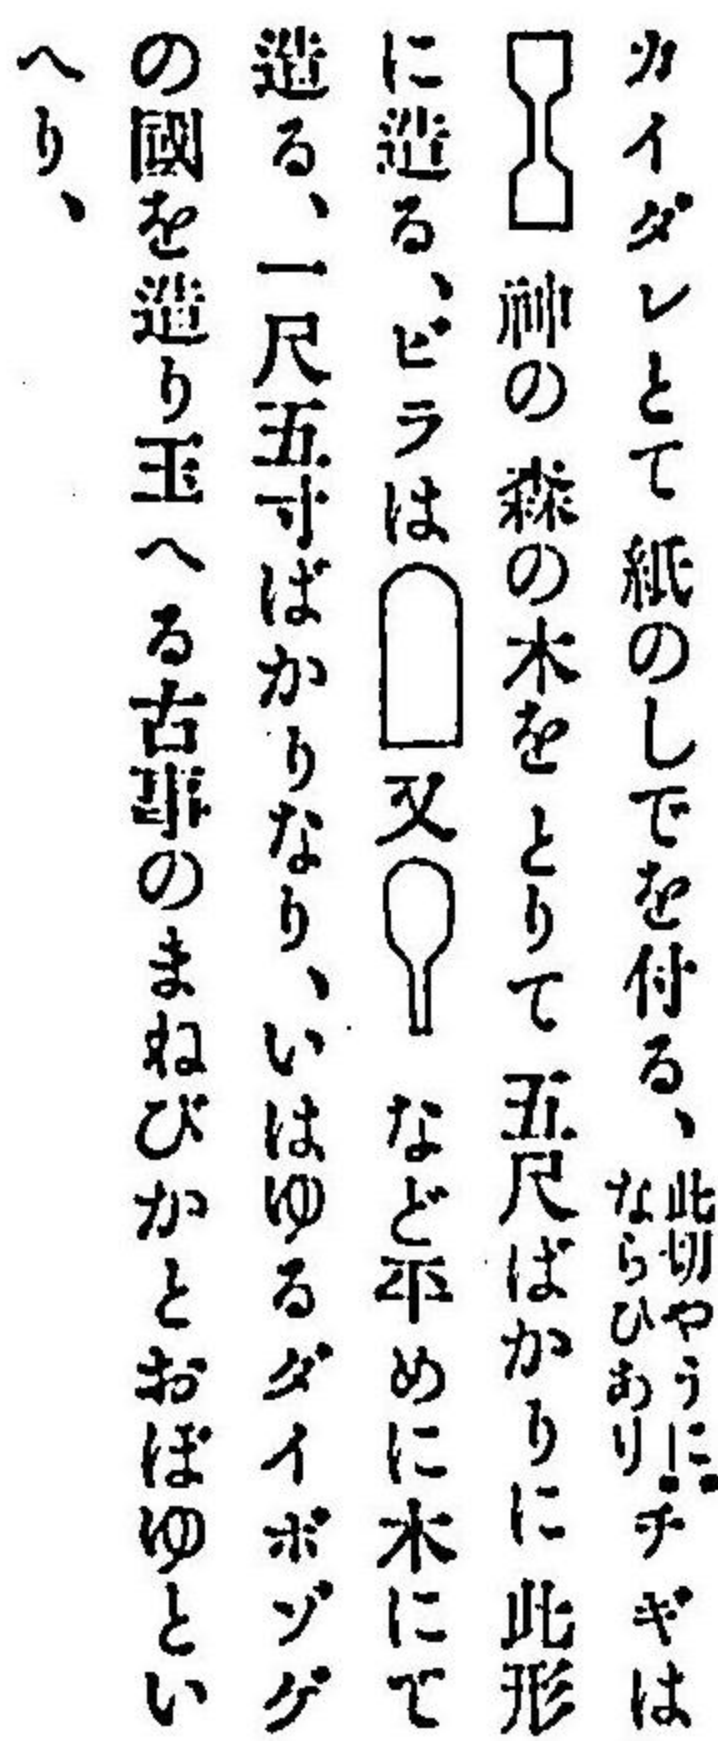 カイダレとて紙のしでを付る、此切やうにならひありチギは
神の森の木をとりて五尺ばかりに此形
に造る、ビラは又など平めに木にて
造る、一尺五寸ばかりなり、いはゆるダイボゾゲ
の國を造り玉へる古事のまねびかとおぼゆとい
へり、